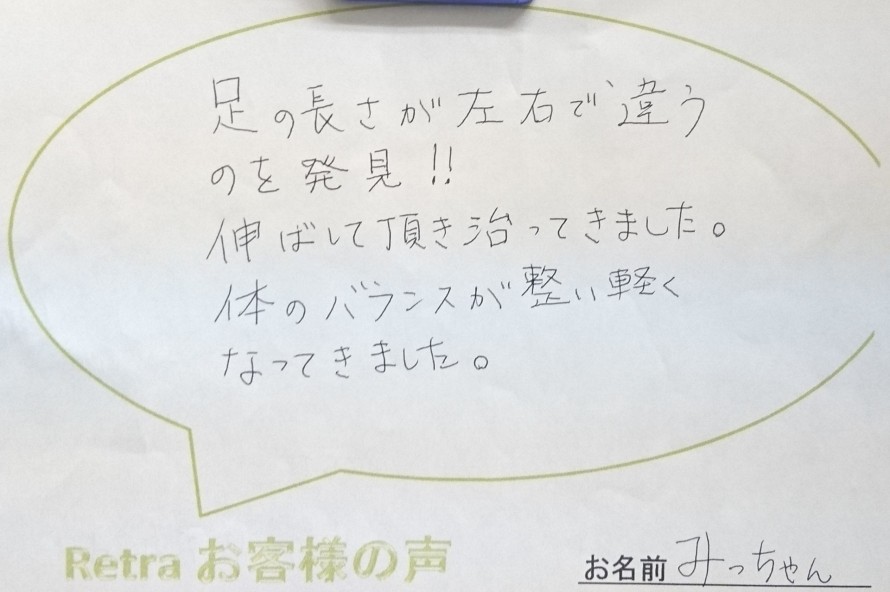 足の長さが左右で違う
のを発見!!
伸ばして頂き治ってきました。
体のバランスが整い軽く
なってきました。
Retra お客様の声
お名前 みっちゃん